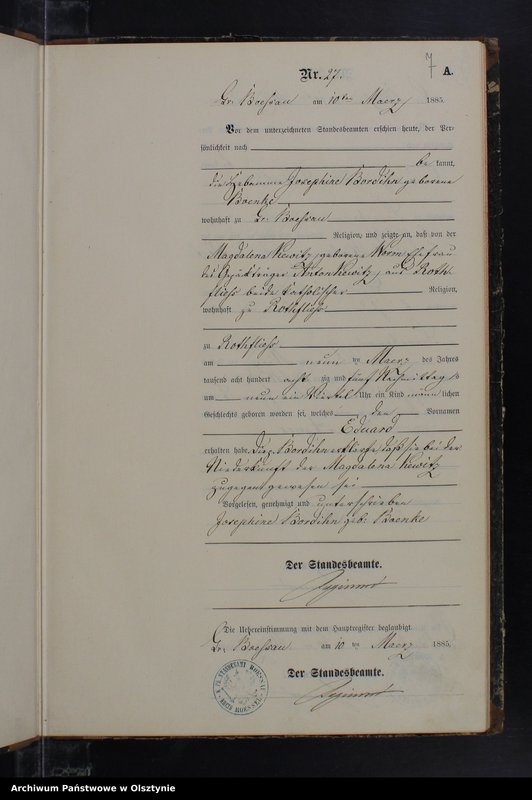 7 A.
Nr. 27.
Gr. Boessau am 10ten Maerz 1885.
Vor dem unterzeichneten Standesbeamten erschien heute, der Per-
sönlichkeit nach
be kannt,
die Hebamme Josephine Bordihn geborene
Boenke
wohnhaft zu Gr. Boessau
Religion, und zeigte an, daß von der
Magdalena Kewitz, geborene Worm Ehefrau
des Anton Kewitz, aus Roth
fliess beide katholischer Religion,
wohnhaft zu Rothfliess
zu Rothfliess
am neun ten Maerz des Jahres
tausend acht hundert acht zig und fünf Nachmittags
um neun ein Viertel Uhr ein Kind männlichen
Geschlechts geboren worden sei, welches den Vornamen
Eduard
erhalten habe. Die p. Bordihn erklärte daß sie bei der
Niederkunft der Magdalena Kewitz
zugegen gewesen sei
Vorgelesen, genehmigt und unterschrieben
Josephine Bordihn geb: Boenke
Der Standesbeamte.
Die Uebereinstimmung mit dem Hauptregister beglaubigt
Gr. Boessau am 10 ten Maerz 1885.
Der Standesbeamte.
Archiwum Państwowe w Olsztynie